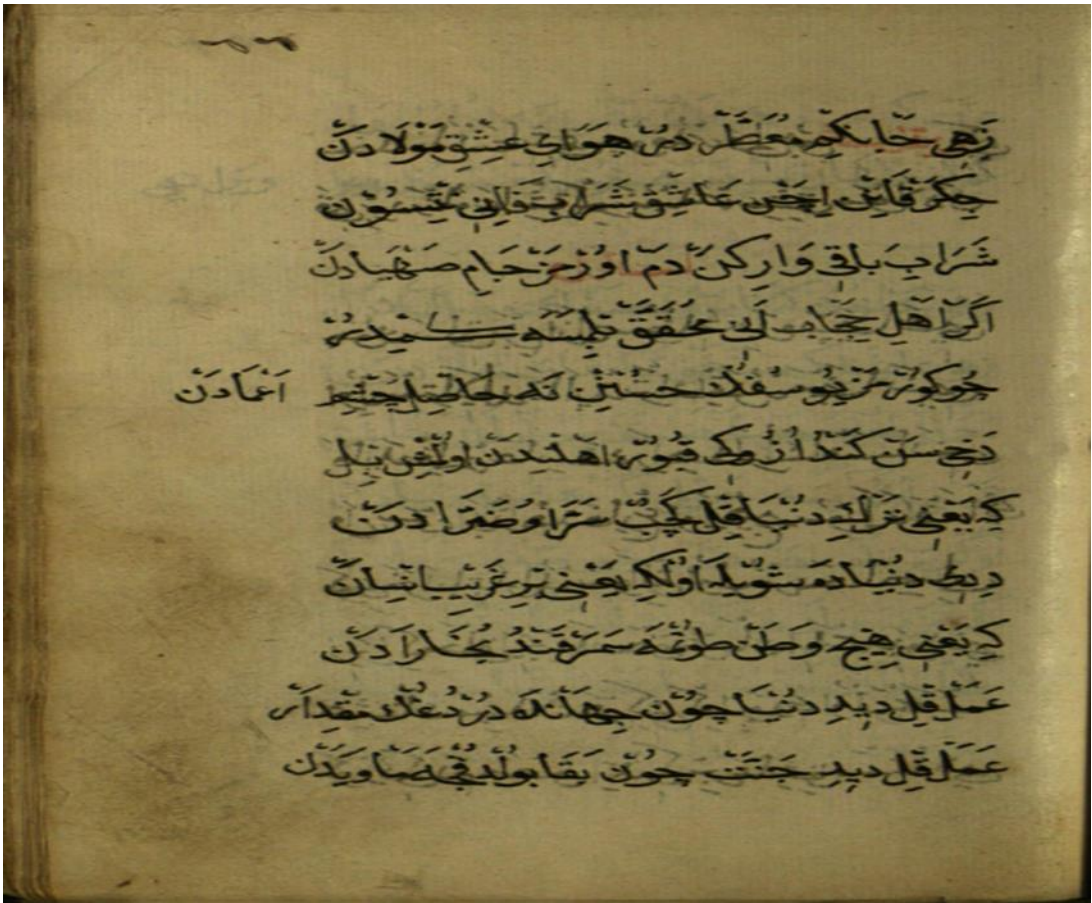 زَهِي جَانكِم مُعَطَّرْ دُرْ هَوَايِ عِشْقِ مَوْلَادَنْ
جِكَرْ قَانِنْ اِچَنْ عَاشِقْ شَرَابِ فَانِي نِيْسُونْ
شَرَابِ بَاقِي وَارِكَنْ دَمْ اُورَرْمِزْ جَامِ صَهْبَادَنْ
اَكَرْ اَهْلِ حِجَابْ اَنِي مُحَقَّقْ بِلْمَسَه دَكُلْمِيدُرْ
چُو كُورْمَزْ يُوسُفُكْ حُسْنِنْ نَه حَاصِلْ چَشْمِ اَعْمَادَنْ
دَخِي سَنْ كَنْدُ اُزُكِ قُبُورْ اَهْلِيدَنْ اُولْمِشْ بِيلْ
كِه يَعْنِي تَرْكِ دُنْيَا قِلْ كَچُبْ سَرَّا وُ ضَرَّادَنْ
دِيدِ دُنْيَادَه شُويْلَه اُولْكِه يَعْنِي بِرْ غَرِيبْسَانْسَانْ
كِه يَعْنِي هِيچْ وَطَنْ طُوتْمَه سَمَرْقَنْدُ بُخَارَادَنْ
عَمَلْ قِلْ دِيدِ دُنْيَاچُونْ جِهَانْدَه دُرْدُغُكْ مِقْدَارْ
عَمَلْ قِلْ دِيدِ جَنَّتْ چُونْ بَقَا بُولْدُقْجَه مَاْوَيَدَنْ